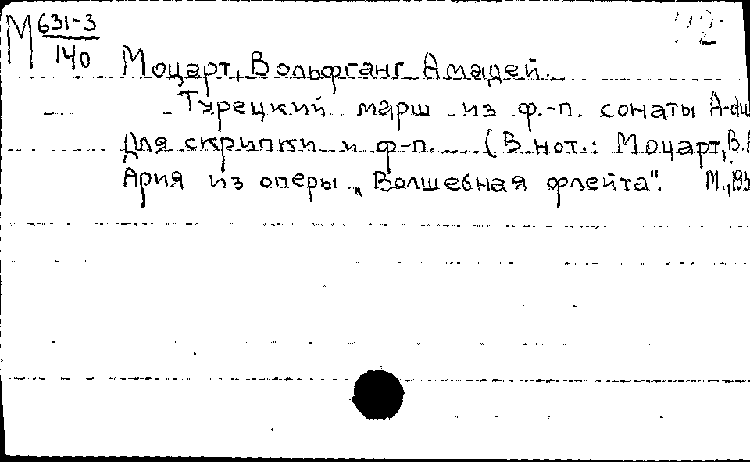 М 631-3
140
Моцарт, Вольфганг Амадей.
Турецкий марш из ф.-п. сонаты A-du
Для скрипки и ф-п. (В нот.: Моцарт, В.
Ария из оперы „Волшебная флейта". М.,